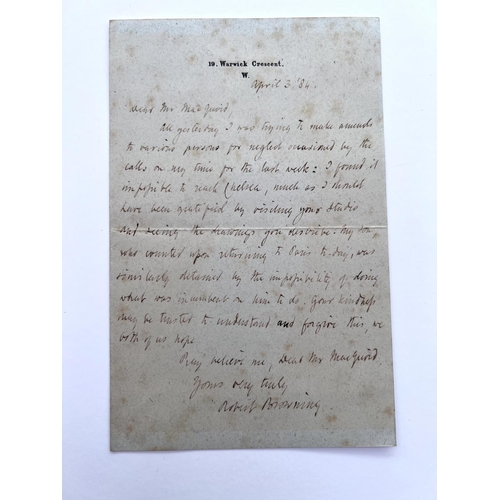 19. Warwick Crescent.
W.
April 3. '84.
Dear Mr MacQuoid,
All yesterday I was trying to make amends
to various persons for neglect occasioned by the
calls on my time for the last week: I found it
impossible to reach Chelsea, much as I should
have been gratified by visiting your studio
and seeing the drawings you describe. My son,
who counted upon returning to Paris to-day, was
similarly detained by the impossibility of doing
what was incumbent on him to do. Your kindness
may be trusted to understand and forgive this, we
both of us hope.
Pray believe me, Dear Mr MacQuoid,
Yours very truly
Robert Browning